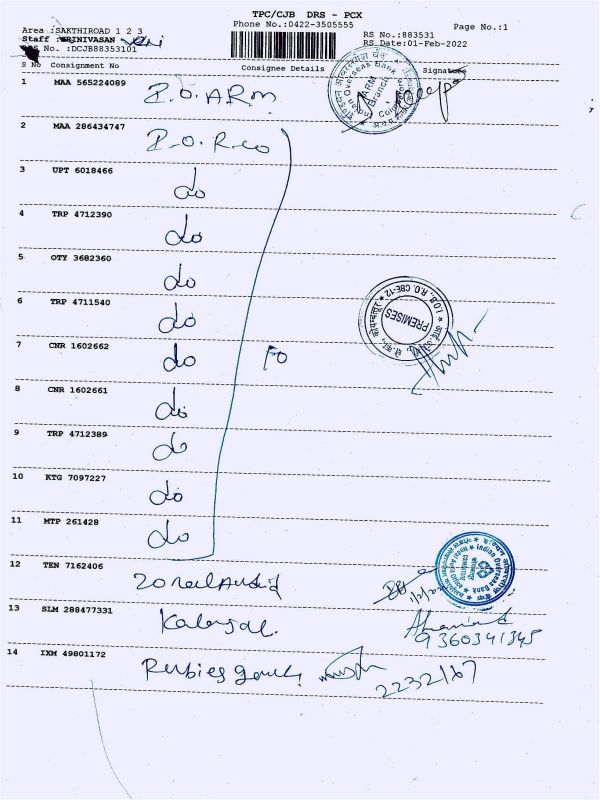 TPC/CJB DRS - PCX
Phone No.:0422-3505555
Page No.:1
Area :SAKTHIROAD 1 2 3
RS No.:883531
Staff :SRINIVASAN
RS Date:01-Feb-2022
DRS No. :DCJB88353101
S No Consignment No Consignee Details Signature
1 MAA 565224089 I.O. ARM
2 MAA 286434747 I.O.R.co
3 UPT 6018466 do
4 TRP 4712390 do
5 OTY 3682360 do
6 TRP 4711540 do
7 CNR 1602662 do 10
8 CNR 1602661 do
9 TRP 4712389 do
10 KTG 7097227 do
11 MTP 261428 do
12 TEN 7162406 Zonal Audit
13 SLM 288477331
9360341345
14 IXM 49801172
2232167
Overseas Bank
ARM
Branch
I.O.B., R.O. CBE-12
PREMISES
Indian Overseas Bank